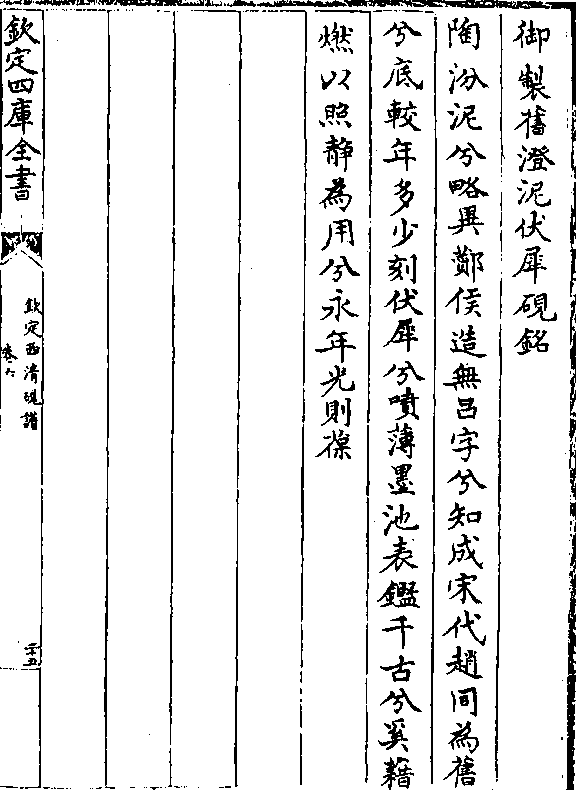 御製舊澄泥伏犀硯銘
陶汾泥兮略異鄴侯造無呂字兮知成宋代趙間為舊
兮底較年多少刻伏犀兮噴薄墨池表鑑千古兮奚藉
燃以照静為用兮永年光則葆
欽定四庫全書
欽定西清硯譜
卷六
二十五